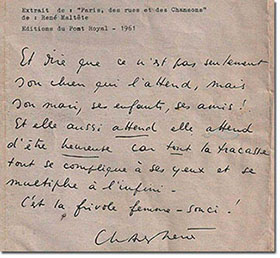 Extrait de : "Paris, des rues et des Chansons"
de : René Maltête
Editions du Pont Royal - 1961
Et dire que ce n'est pas seulement
son chien qui l'attend, mais
son mari, ses enfants, ses amis !
Et elle aussi attend elle attend
d'être heureuse car tout la tracasse
tout se complique à ses yeux et se
multiplie à l'infini -
C'est la frivole femme-souci !